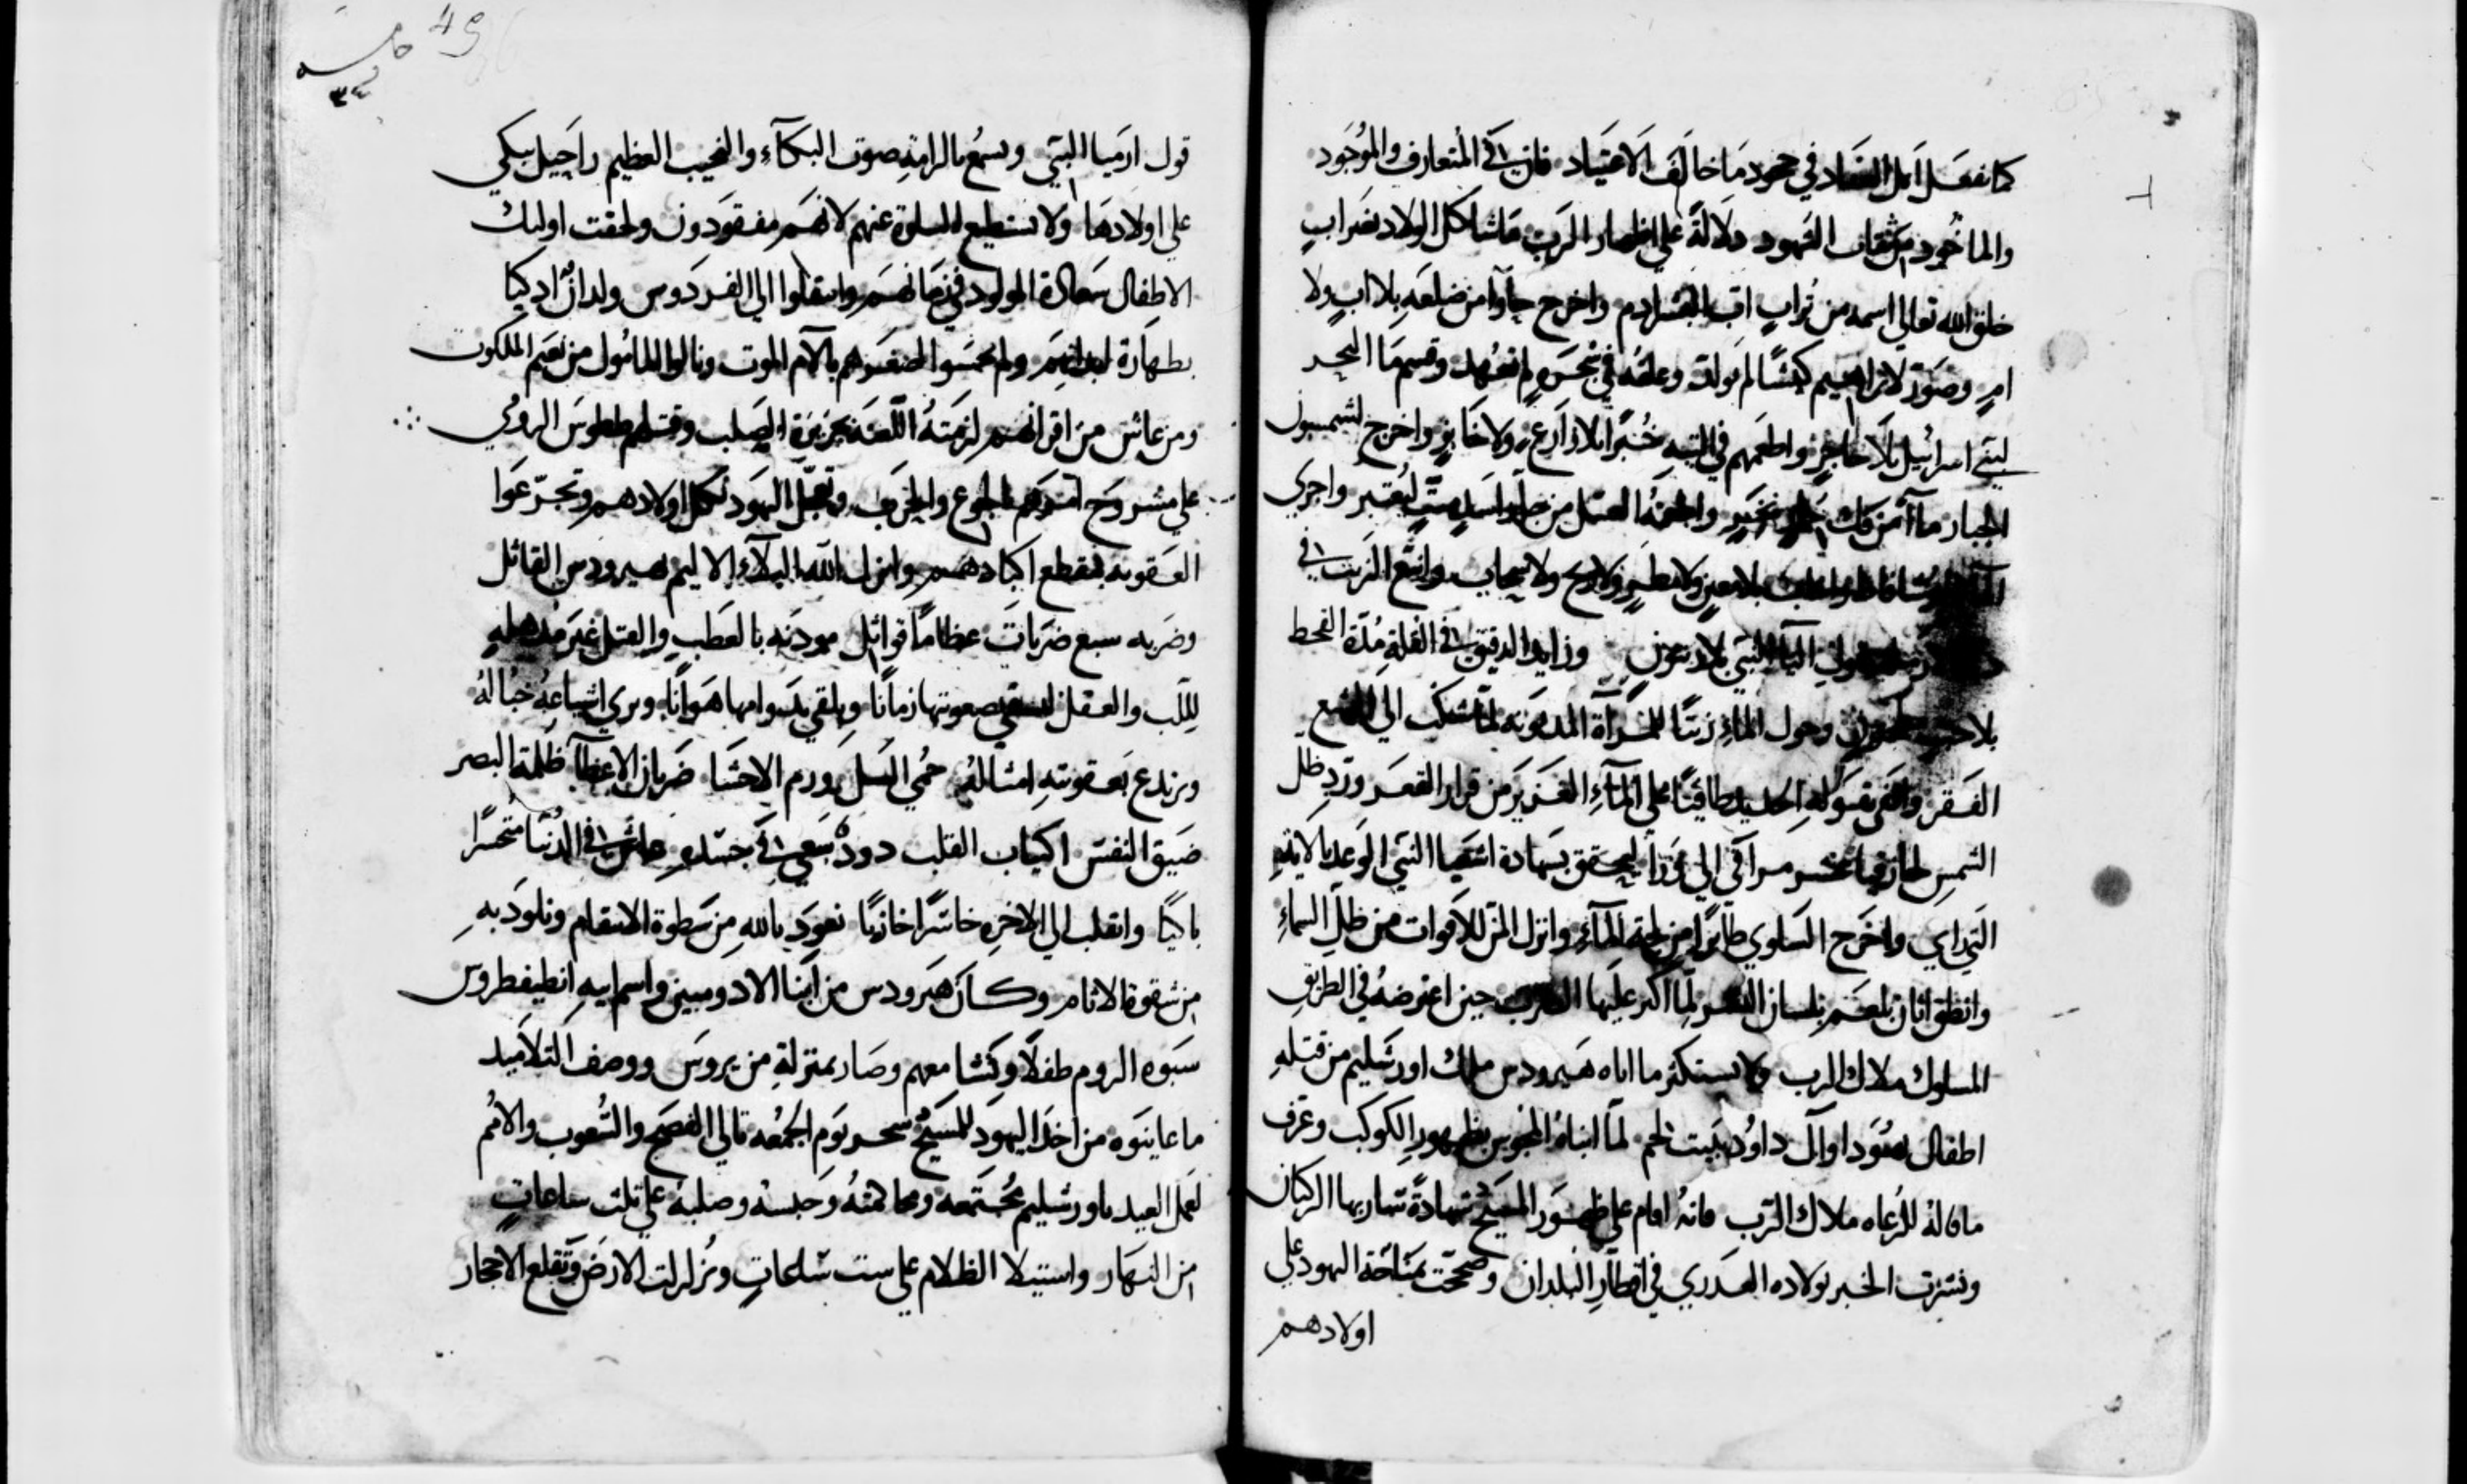 كما نفعل اهل الفساد في جحود ما خالف الاعتياد فان في المتعارف والموجود
والماخود من ثقات الشهود دلالة علي اظهار الرب ماشاكل الولاد بغير اب
خلق الله تعالي اسمه من تراب اب البشر ادم واخرج حآوا من ضلعه بلا اب ولا
ام وصور لابراهيم كبشا لم يولد وعلقه في شجره لم تعهد وقسم ما البحر
لبني اسرائيل بلا حاجز واطعمهم في التيه خبزا بلا زارع ولا خابز واخرج لشمسون
الجبار مآ من فك واطعمه العسل من اسد ميت ليعتبر واجري
بلا معين ولا مطر ولا ريح ولا سحاب وانبع الزيت في
اليا النبي بلا زيتون وزايد الدقيق في القلة مدة القحط
بلا وحول المآء زيتا للمرآة المديونه لما شكت الي اليشع
الفقر واطفي بقوله الحديد طافيا علي المآء الغزير من قرار القعر ورد ظل
الشمس لحازقيا عشر مراقي الي ورا ليحقق بشهادة اشعيا النبي الوعد بالاية
التي راي واخرج السلوي طايرا من لجة المآء وانزل المن للاقوات من ظل السماء
وانطق اتان بلعم بلسان البشر لما اكثر عليها الضرب حين اعترضه في الطريق
المسلوك ملاك الرب ولا يستكثر ما اتاه هيرودس ملك اورشليم من قتله
اطفال يهودا وآل داود ببيت لحم لما انباه المجوس بظهور الكوكب وعرف
ما قاله للرعاه ملاك الرب فانه اقام علي ظهور المسيح شهادة تسار بها الركبان
ونشرت الخبر بولاده العدري في اقطار البلدان وصححت بمناحة اليهود علي
اولادهم
49
قول ارميا النبي وسمع بالرامة صوت البكآء والنحيب العظيم راحيل تبكي
علي اولادها ولا تستطيع السلوة عنهم لانهم مفقودون ولحقت اوليك
الاطفال سعادة المولود في زمانهم وانتقلوا الي الفردوس ولدان ازكيا
بطهارة ابدانهم ولم يحسوا لصغرهم بآلام الموت ونالوا المامول من نعيم الملكوت
ومن عاش من اقرانهم لزمته اللعنه بجريرة الصلب وقتلهم طيطوس الرومي
علي مشروح الجوع والخوف وتعجل اليهود لكل اولادهم وتجرعوا
العقوبه بتقطع اكبادهم وانزل الله البلآء الاليم بهيرودس القاتل
وضربه سبع ضربات عظاما قواتل مودنه بالعطب والقتل غير مذهله
للب والعقل صعوبتها زمانا ويلقي بدوامها هوانا ويري اشياعه خباله
ويرتدع بعقوبته امثاله حمي السل ورم الاحشا ضربان الاعضآ ظلمة البصر
ضيق النفس اكتياب القلب دود يسعي في جسده عاش في الدنيا متحسرا
باكيا وانقلب الي الاخره خاسرا خازيا نعود بالله من سطوة الانتقام ونلود به
من شقوة الانام وكان هيرودس من ابنا الادوميين واسم ابيه انطيفطروس
سبوه الروم طفلا ونشا معهم وصار بمنزلة من يروس ووصف التلاميد
ما عاينوه من اخد اليهود للمسيح سحر يوم الجمعه تالي الفصح والشعوب والامم
لعمل العيد باورشليم مجتمعه ومحاكمته وحبسه وصلبه علي ثلث ساعات
من النهار واستيلا الظلام علي ست ساعات وتزلزلت الارض وتقلع الاحجار